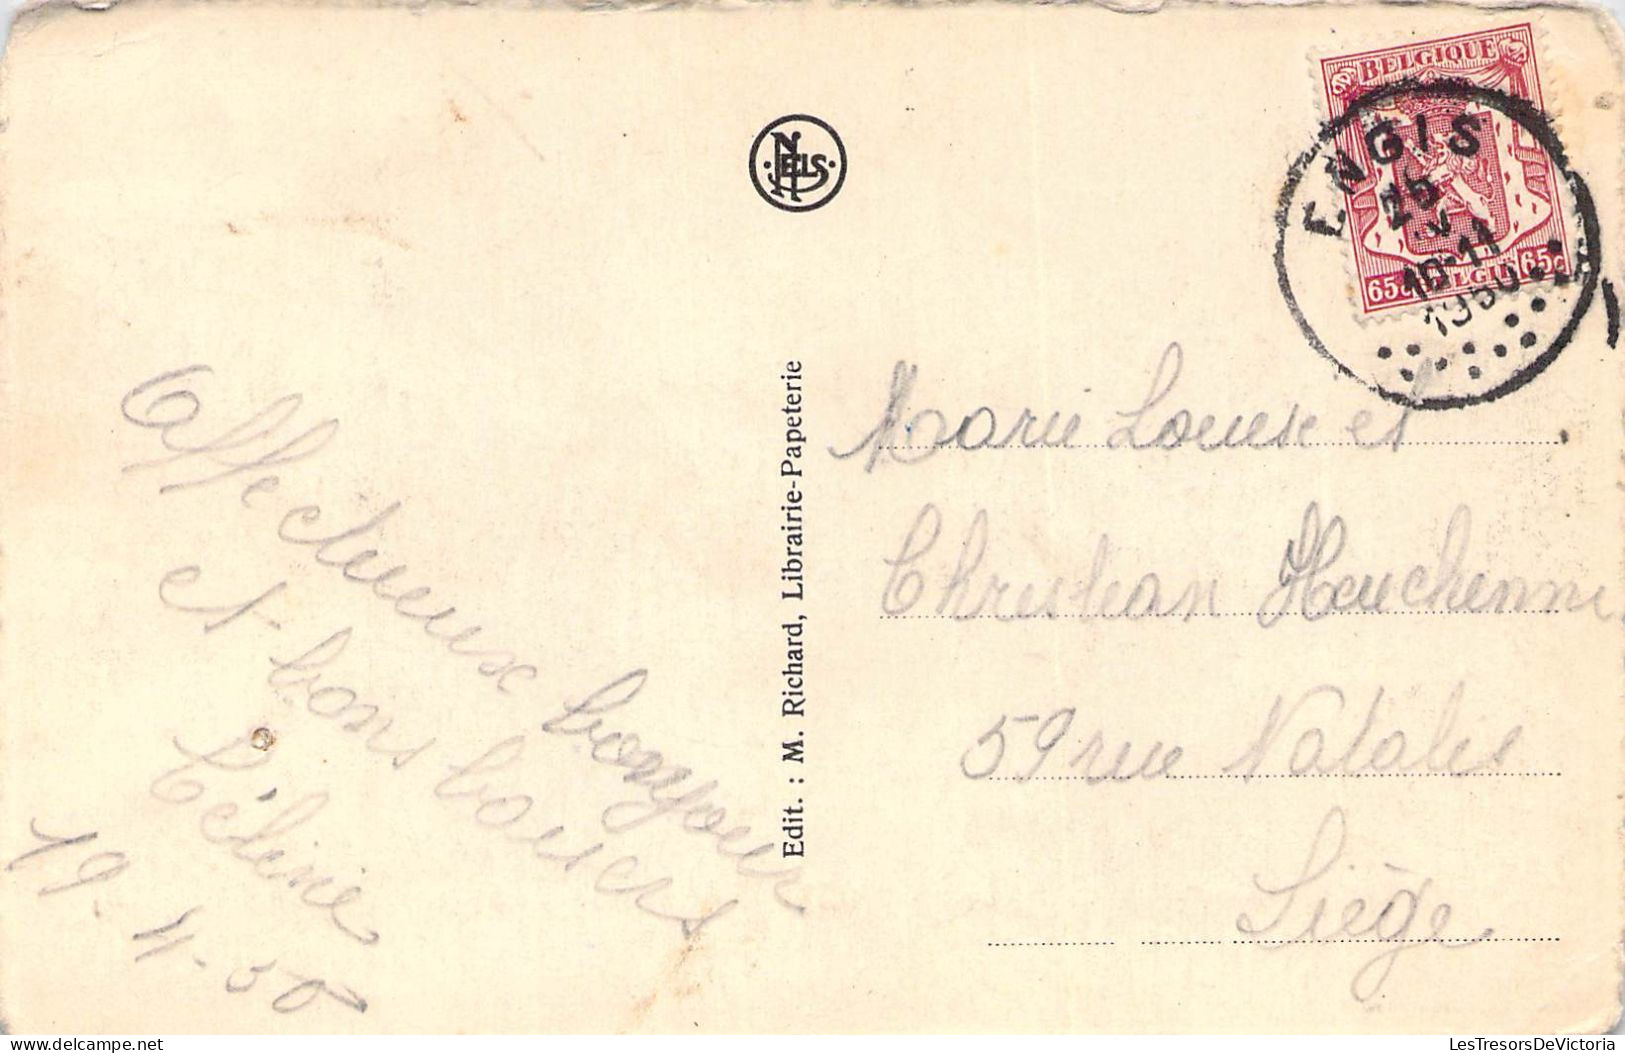 BELGIQUE
65c BELGIE 65c
ENGIS
25
10-11
1950
NELS
Affectueux bonjour
et bons baisers
Céline
19-4-50
Edit. : M. Richard, Librairie-Papeterie
Marie Louise et
Christian Heuchenne
59 rue Natalis
Liège
delcampe.net
LesTresorsDeVictoria